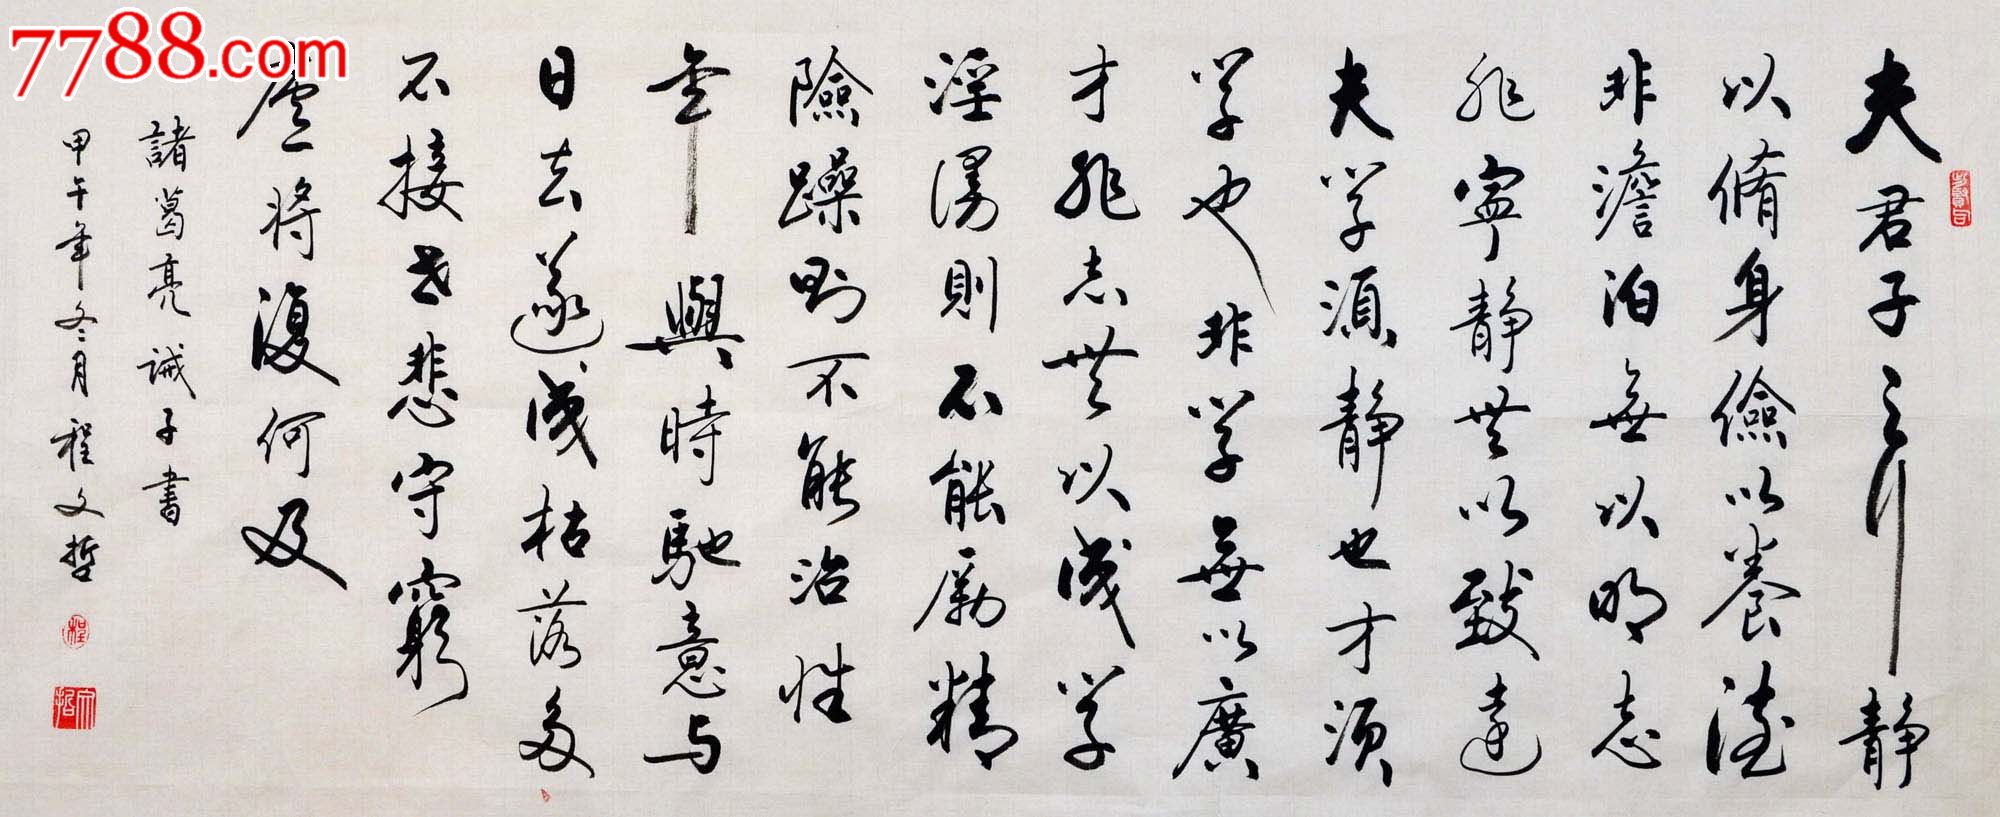 7788.com
夫君子之行静
以脩身儉以養德
非澹泊無以明志
非寧静無以致遠
夫学須静也才須
学也非学無以廣
才非志無以成学
淫漫則不能勵精
險躁则不能治性
年與時馳意与
日去遂成枯落多
不接世悲守窮
廬将復何及
諸葛亮诫子書
甲午年冬月程文哲
程
文哲